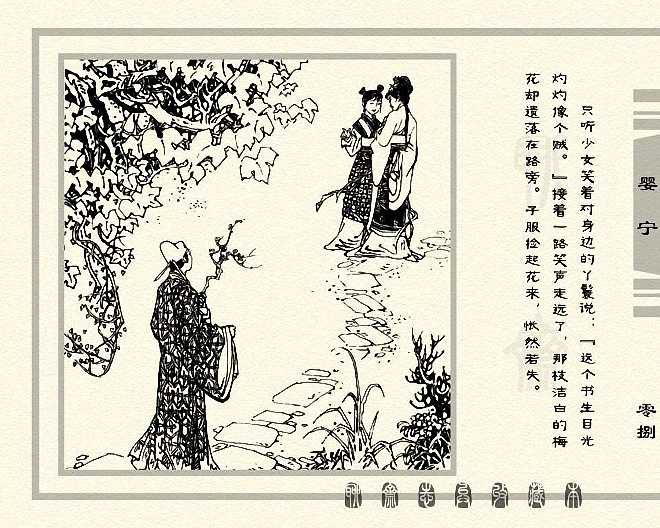 只听少女笑着对身边的丫鬟说：『这个书生目光
灼灼像个贼。』接着一路笑声走远了，那枝洁白的梅
花却遗落在路旁。子服捡起花来，怅然若失。
婴宁
零捌
聊斋志异收藏本